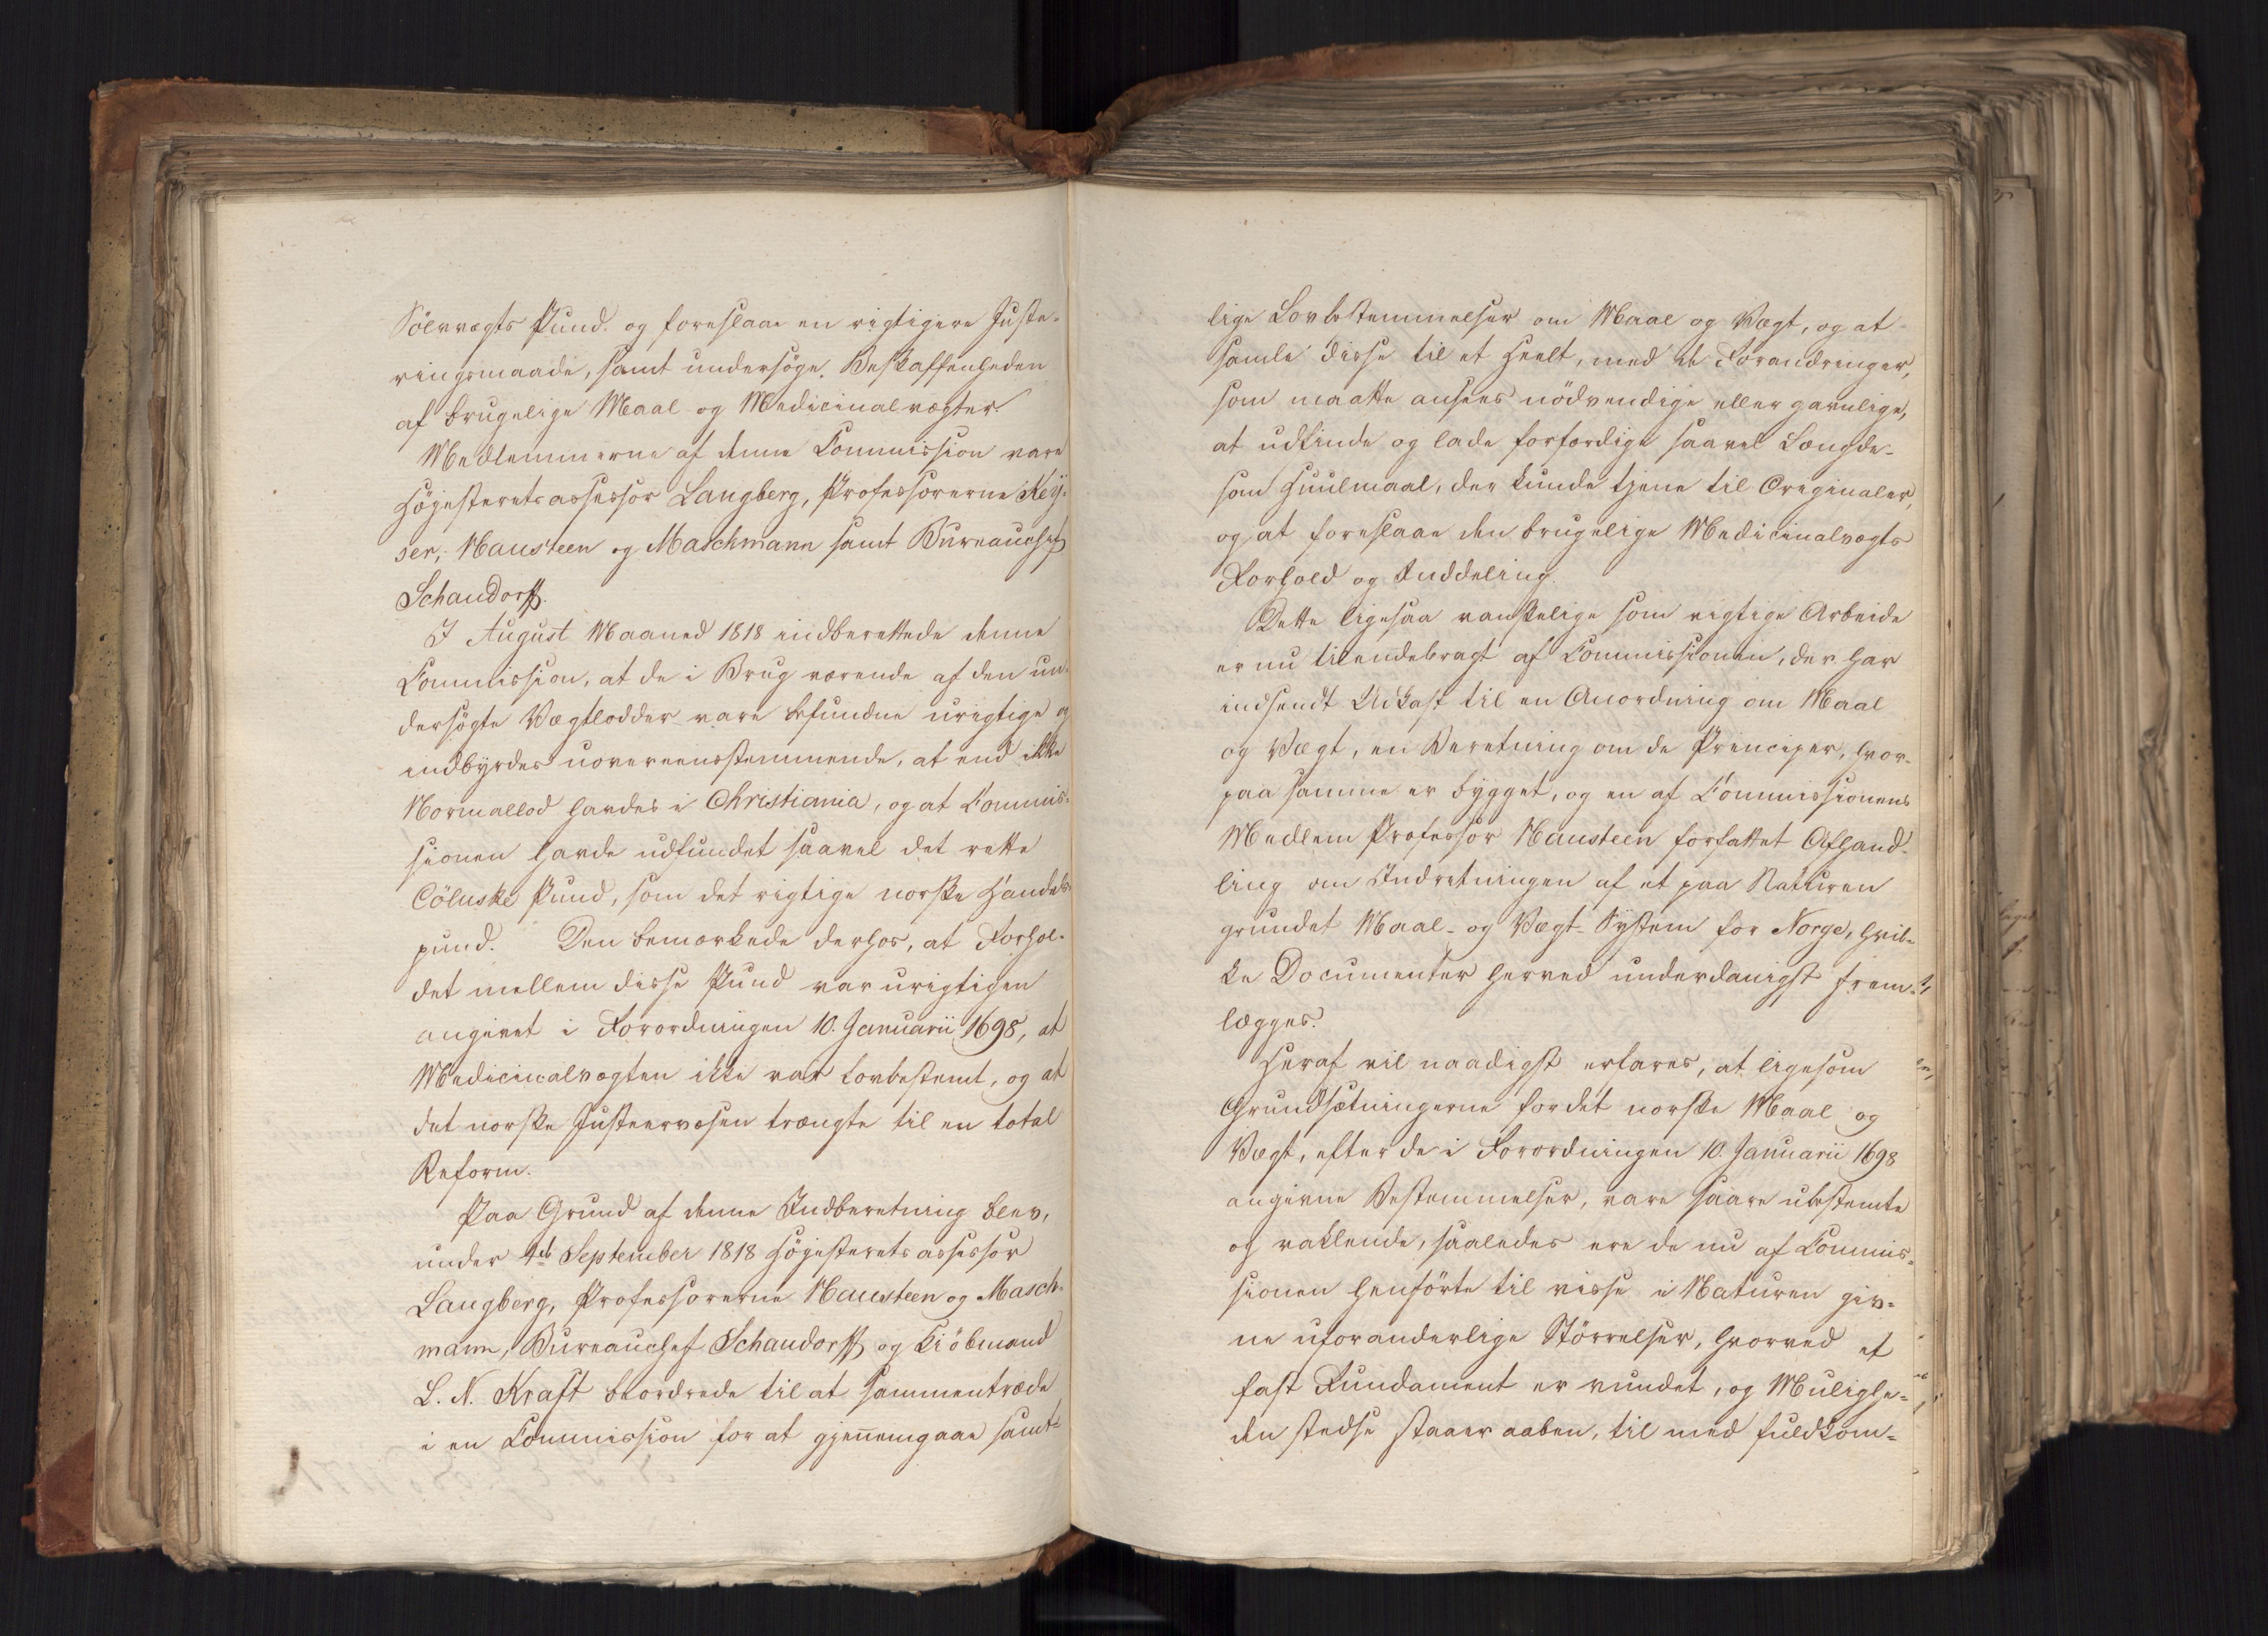 Sölvvægts Pund og foreslaae en rigtigere Juste-
ringsmaade, samt undersöge Beskaffenheden
af brugelige Maal og Medicinalvægter.
Medlemmerne af denne Commission vare
Höjesteretsassessor Langberg, Professorerne Key-
ser, Hansteen og Maschmann samt Bureauchef
Schandorff.
I August Maaned 1818 indberettede denne
Commission, at de i Brug værende af den un-
dersögte Vægtlodder vare befundne urigtige og
indbyrdes uovereensstemmende, at end ikke
Normallod havdes i Christiania, og at Commis-
sionen havde udfundet saavel det rette
Cölnske Pund, som det rigtige norske Handels-
pund. Den bemærkede derhos, at Forhol-
det mellem disse Pund var urigtigen
angivet i Forordningen 10. Januarii 1698, at
Medicinalvægten ikke var lovbestemt, og at
det norske Justeervæsen trængte til en total
Reform.
Paa Grund af denne Indberetning blev,
under 1ste September 1818 Höjesteretsassessor
Langberg, Professorerne Hansteen og Masch-
mann, Bureauchef Schandorff og Kiöbmand
L. N. Kraft beordrede til at sammentræde
i en Commission for at gjennemgaae samt-
lige Lovbestemmelser om Maal og Vægt, og at
samle disse til et Heelt, med de Forandringer,
som maatte ansees nödvendige eller gavnlige,
at udfinde og lade forfærdige saavel Længde-
som Huulmaal, der kunde tjene til Originaler,
og at foreslaae den brugelige Medicinalvægts
Forhold og Inddeling.
Dette ligesaa vanskelige som vigtige Arbeide
er nu tilendebragt af Commissionen, der har
indsendt Udkast til en Anordning om Maal
og Vægt, en Beretning om de Principer, hvor-
paa samme er bygget, og en af Commissionens
Medlem Professor Hansteen forfattet Afhand-
ling om Indretningen af et paa Naturen
grundet Maal- og Vægt-System for Norge, hvil-
ke Documenter herved underdanigst frem-
lægges.
Heraf vil naadigst erfares, at ligesom
Grundsætningerne for det norske Maal og
Vægt, efter de i Forordningen 10. Januarii 1698
angivne Bestemmelser, vare saare ubestemte
og vaklende, saaledes ere de nu af Commis-
sionen henförte til visse i Naturen giv-
ne uforanderlige Störrelser, hvorved et
fast Fundament er vundet, og Mulighe-
den stedse staaer aaben, til med fuldkom-